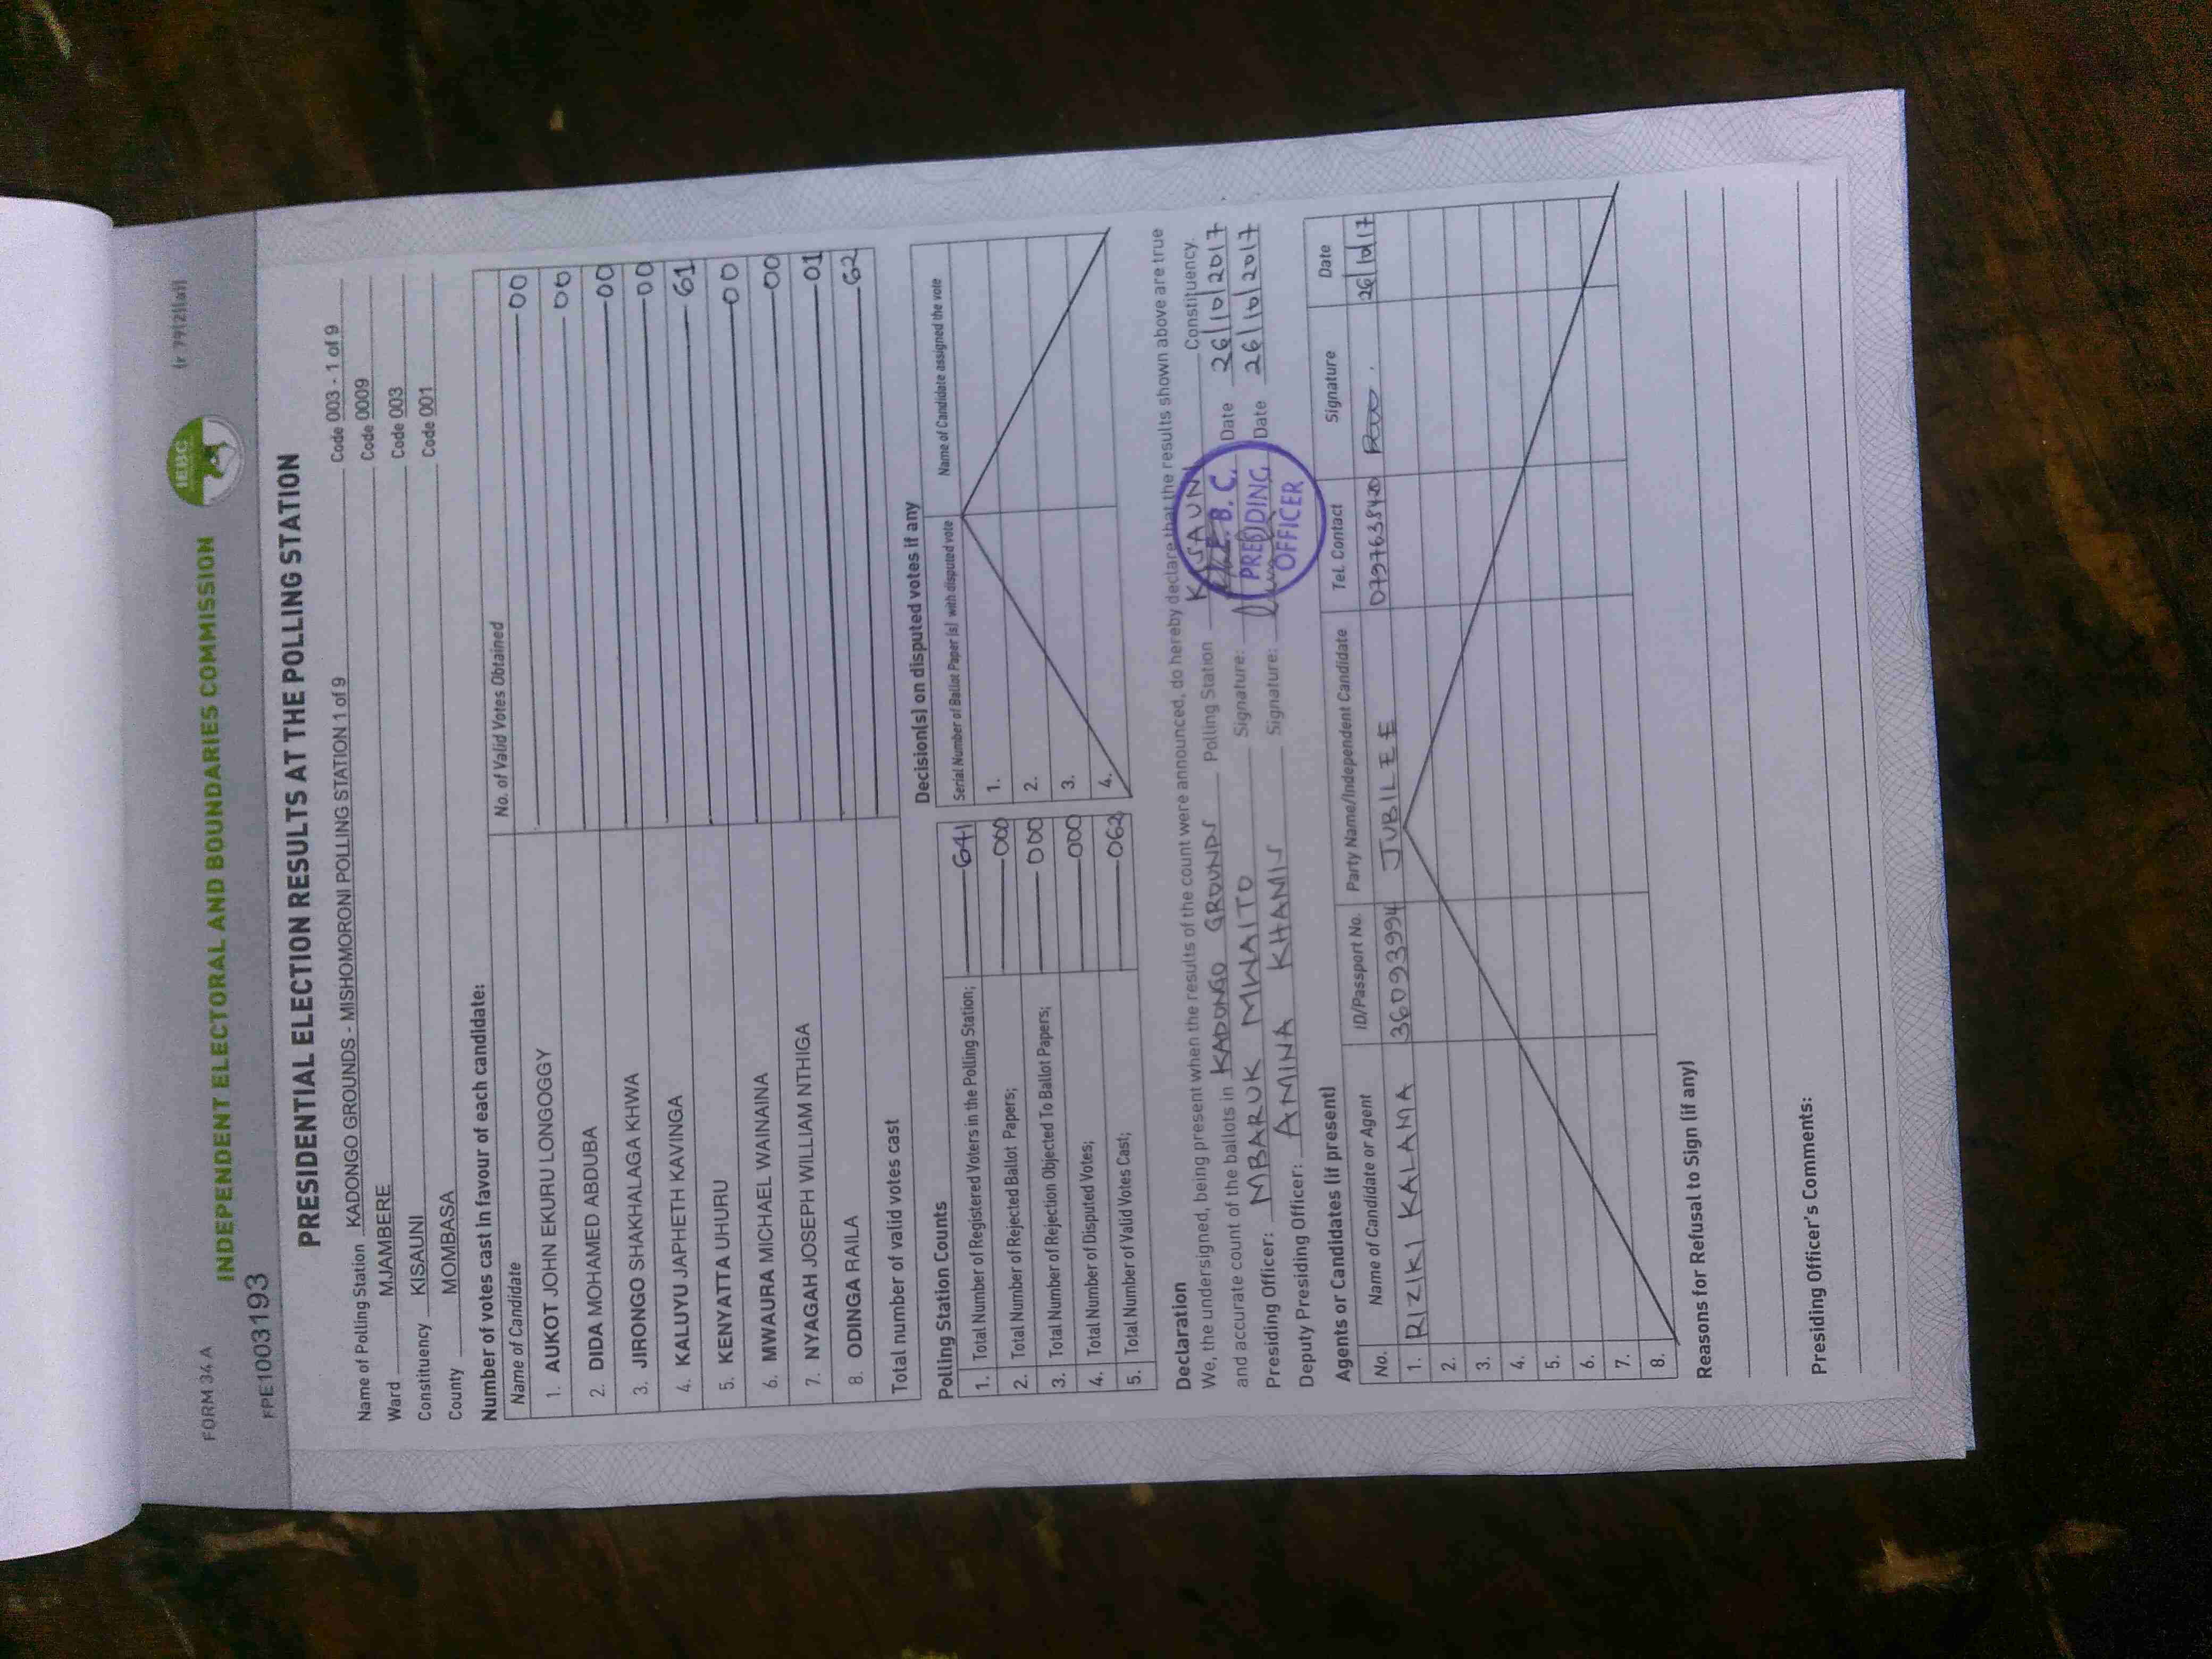 FORM 34 A
(r 79(2)(a))
INDEPENDENT ELECTORAL AND BOUNDARIES COMMISSION
IEBC
FPE10031193
PRESIDENTIAL ELECTION RESULTS AT THE POLLING STATION
Name of Polling Station KADONGO GROUNDS - MISHOMORONI POLLING STATION 1 of 9 Code 003 - 1 of 9
Ward MJAMBERE Code 0009
Constituency KISAUNI Code 003
County MOMBASA Code 001
Number of votes cast in favour of each candidate:
Name of Candidate No. of Valid Votes Obtained
1. AUKOT JOHN EKURU LONGOGGY 00
2. DIDA MOHAMED ABDUBA 00
3. JIRONGO SHAKHALAGA KHWA 00
4. KALUYU JAPHETH KAVINGA 00
5. KENYATTA UHURU 61
6. MWAURA MICHAEL WAINAINA 00
7. NYAGAH JOSEPH WILLIAM NTHIGA 00
8. ODINGA RAILA 01
Total number of valid votes cast 62
Polling Station Counts
1. Total Number of Registered Voters in the Polling Station; 641
2. Total Number of Rejected Ballot Papers; 000
3. Total Number of Rejection Objected To Ballot Papers; 000
4. Total Number of Disputed Votes; 000
5. Total Number of Valid Votes Cast; 062
Decision(s) on disputed votes if any
Serial Number of Ballot Paper(s) with disputed vote Name of Candidate assigned the vote
1.
2.
3.
4.
Declaration
We, the undersigned, being present when the results of the count were announced, do hereby declare that the results shown above are true
and accurate count of the ballots in KADONGO GROUNDS Polling Station KISAUNI Constituency.
Presiding Officer: MBARUK MWAITO Signature: Date 26/10/2017
Deputy Presiding Officer: AMINA KHAMIS Signature: Date 26/10/2017
I.E.B.C.
PRESIDING
OFFICER
Agents or Candidates (if present)
No. Name of Candidate or Agent ID/Passport No. Party Name/Independent Candidate Tel. Contact Signature Date
1. RIZIKI KALAMA 36093994 JUBILEE 26/10/17
2.
3.
4.
5.
6.
7.
8.
Reasons for Refusal to Sign (if any)
Presiding Officer's Comments: